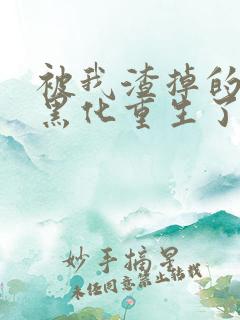 被我渣掉的
黑化重生了
妙手摘星
未经同意禁止转载